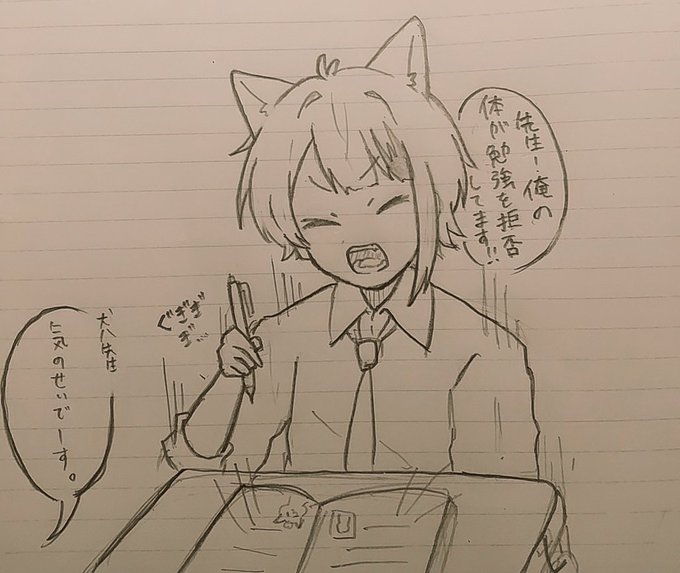 先生!俺の
体が勉強を拒否
してます!!
ぐぎぎ
ぎ…
気のせいでーす。